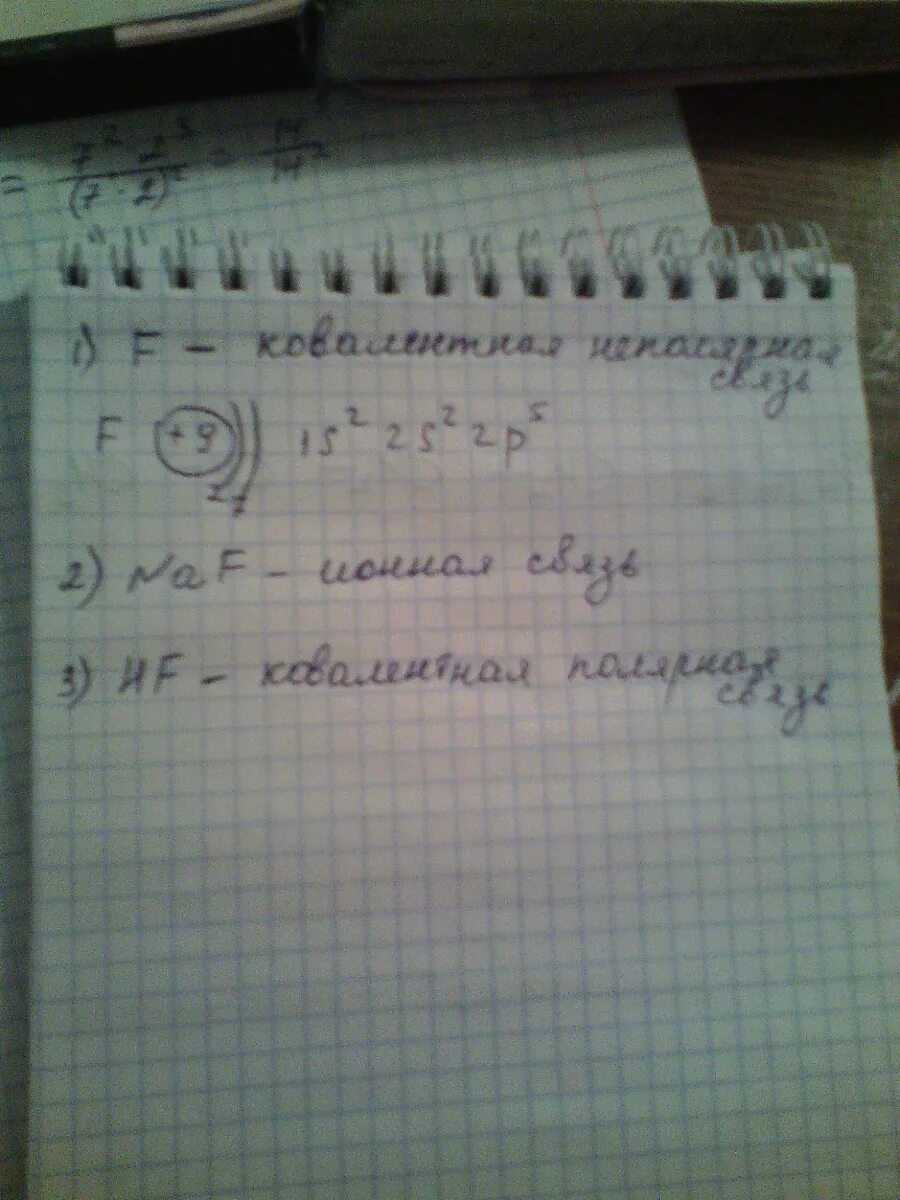 = 7² · 2³ / (7 · 2)² = 14 / 14²
1) F – ковалентная неполярная
связь
F +9 )) 1s² 2s² 2p⁵
2 7
2) NaF – ионная связь
3) HF – ковалентная полярная
связь